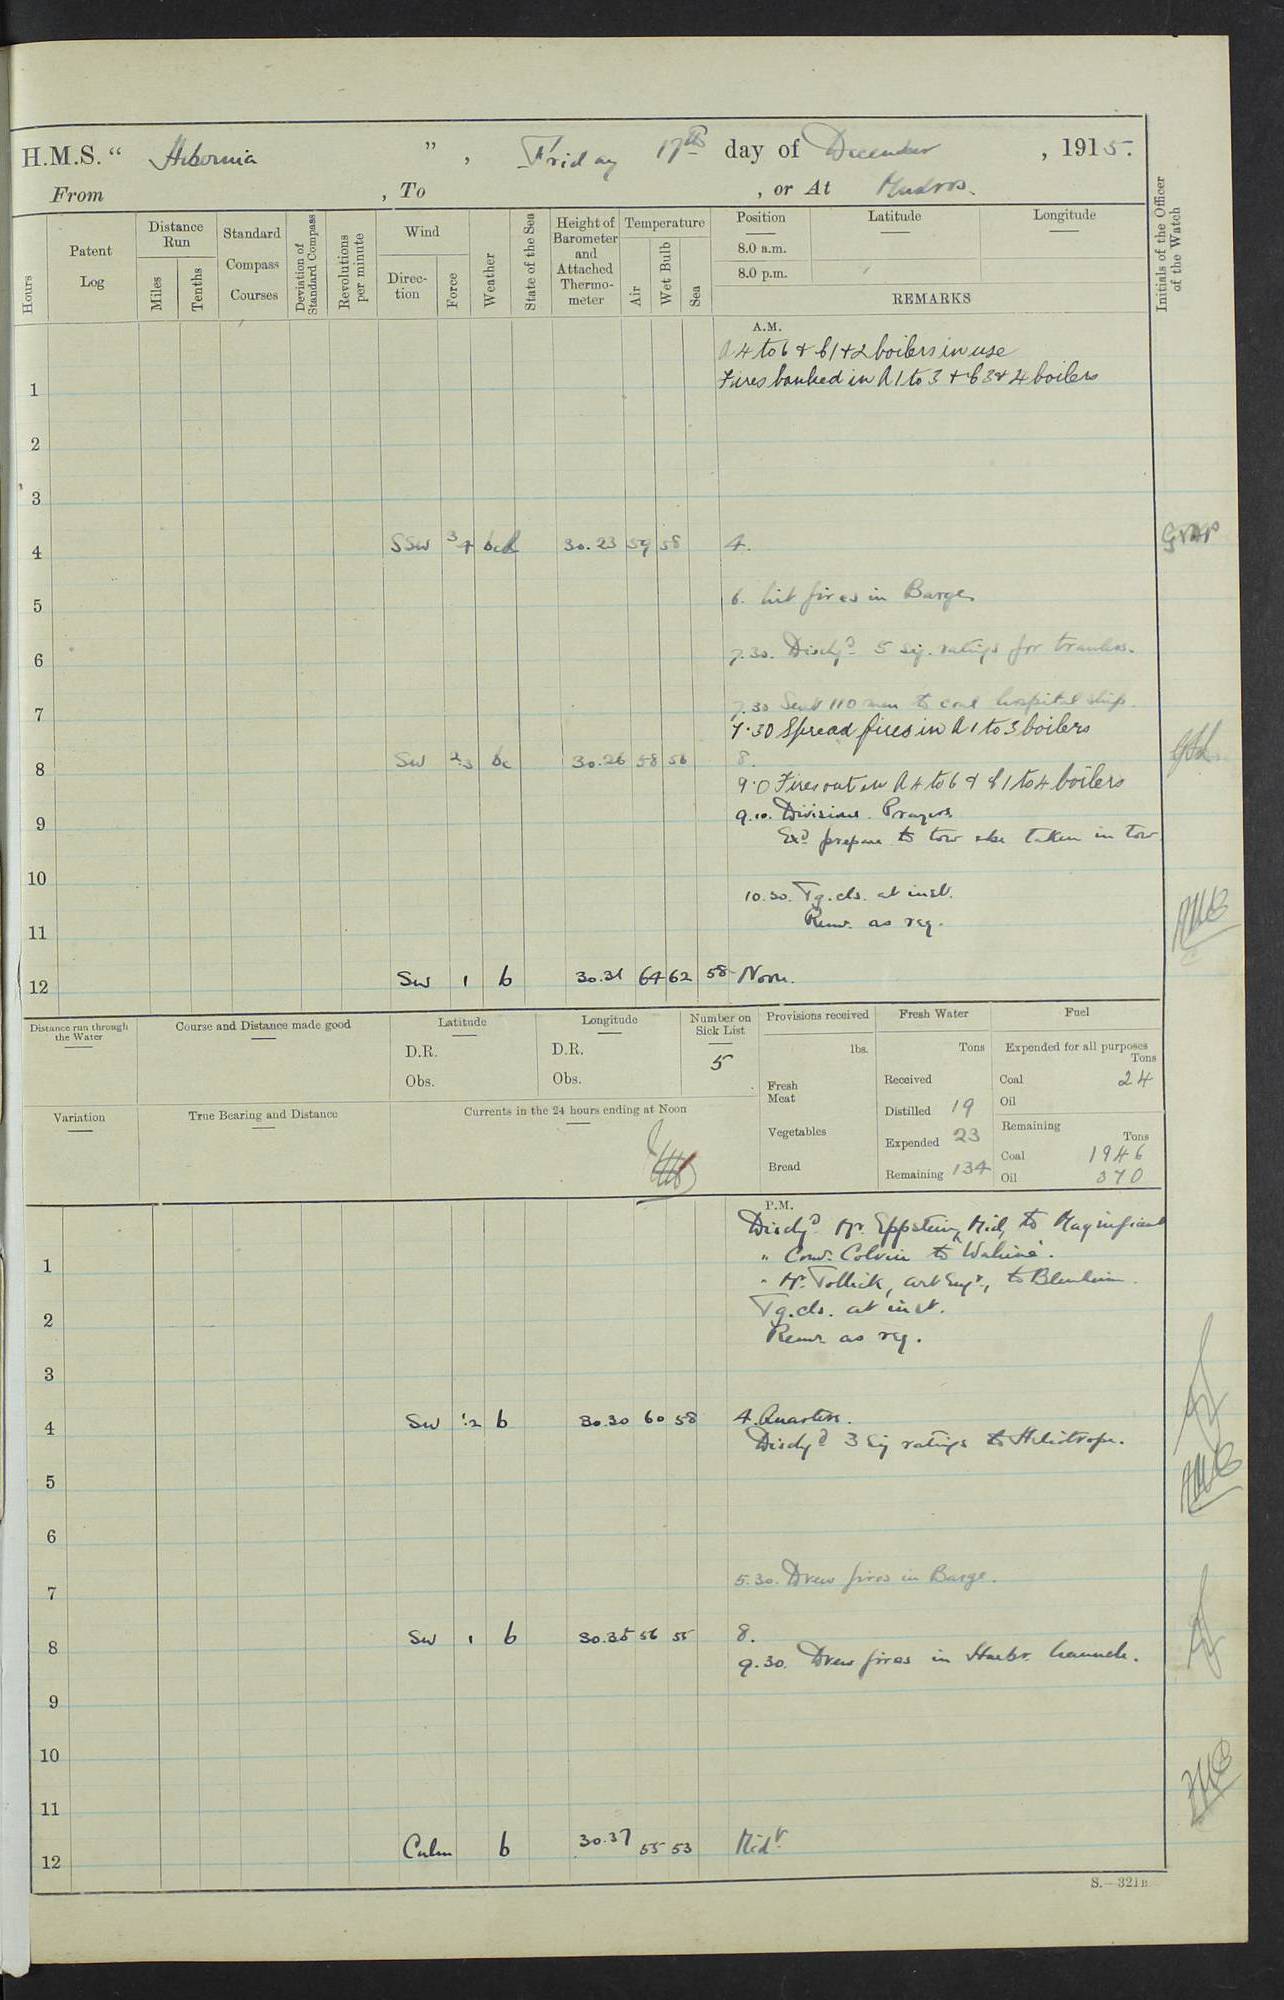 H.M.S. “ Hibernia ” , Friday 17th day of December , 1915.
From , To , or At Mudros.
Hours
Patent Log
Distance Run
Miles
Tenths
Standard Compass Courses
Deviation of Standard Compass
Revolutions per minute
Wind
Direction
Force
Weather
State of the Sea
Height of Barometer and Attached Thermometer
Temperature
Air
Wet Bulb
Sea
Position
8.0 a.m.
8.0 p.m.
Latitude
Longitude
REMARKS
Initials of the Officer of the Watch
A.M.
A 4 to 6 & B 1 + 2 boilers in use
1 Fires banked in A 1 to 3 + B 3 & 4 boilers
2
3
4 SSW 3/4 30.23 59 58 4.
5 6. Lit fires in Barge
6 7.30. Dischd 5 sig. ratings for trawlers.
7 7.30 Sent 110 men to coal hospital ship.
7.30 Spread fires in A 1 to 3 boilers
8 SW 2.3 bc 30.26 58 56 8.
9.0 Fires out in A 4 to 6 & B 1 to 4 boilers
9 9.10. Divisions. Prayers
Exd prepare to tow & be taken in tow
10
10.30. Tg. cls. at inst.
11 Remr. as req.
12 SW 1 b 30.31 64 62 58 Noon.
Distance run through the Water
Course and Distance made good
Latitude
D.R.
Obs.
Longitude
D.R.
Obs.
Number on Sick List
5
Provisions received
lbs.
Fresh Meat
Vegetables
Bread
Fresh Water
Tons
Received
Distilled 19
Expended 23
Remaining 134
Fuel
Expended for all purposes
Tons
Coal 24
Oil
Remaining
Tons
Coal 1946
Oil 370
Variation
True Bearing and Distance
Currents in the 24 hours ending at Noon
P.M.
Dischd Mr. Eppstein, Mid, to Magnificent
1 " Com. Colvin to Wahine.
" Mr. Tollick, Art Engr, to Blenheim.
2 Tg. cls. at inst.
Remr as req.
3
4 SW 1.2 b 30.30 60 58 4. Quarters.
Dischd 3 Sig ratings to Heliotrope.
5
6
7 5.30. Drew fires in Barge.
8 SW 1 b 30.35 56 55 8.
9.30. Drew fires in Harbr. launch.
9
10
11
12 Calm b 30.37 55 53 Midt
S.—321B